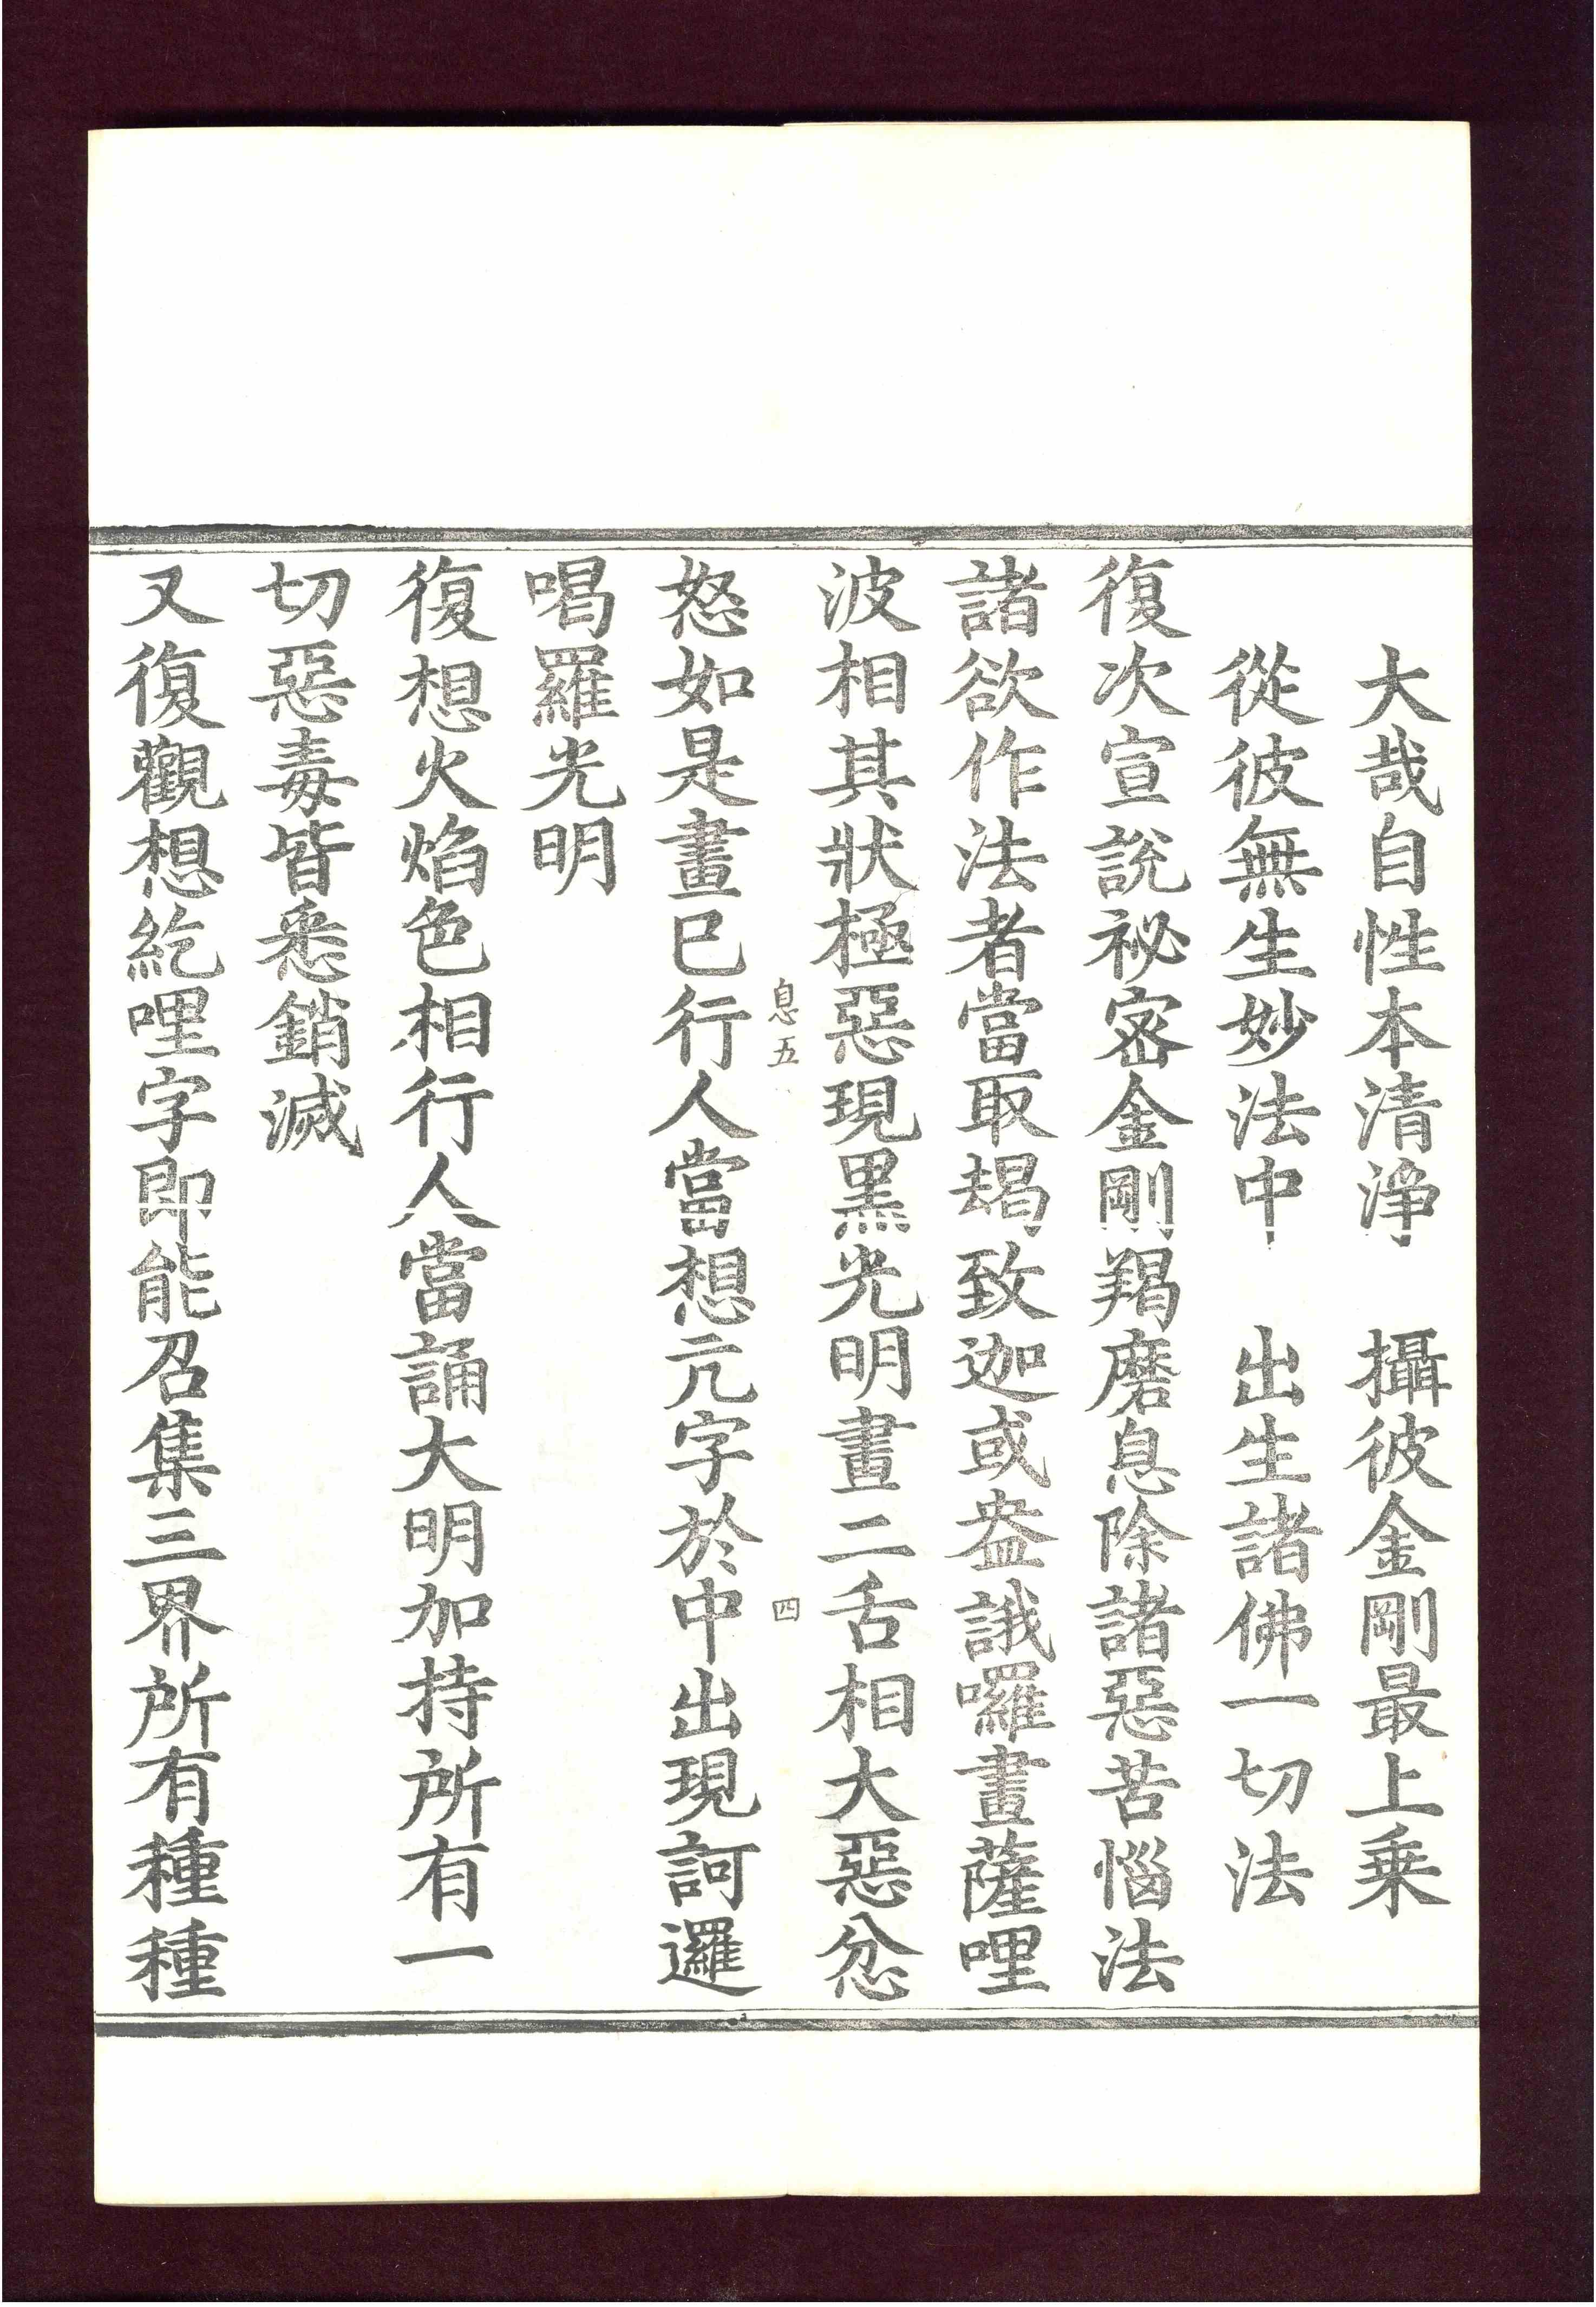 大哉自性本清淨　攝彼金剛最上乗
從彼無生妙法中　出生諸佛一切法
復次宣說祕密金剛羯磨息除諸惡苦惱法
諸欲作法者當取朅致迦或盎誐囉畫薩哩
波相其狀極惡現黑光明畫二舌相大惡忿
息五　四
怒如是畫已行人當想亢字於中出現訶邏
喝羅光明
復想火焰色相行人當誦大明加持所有一
切惡毒皆悉銷滅
又復觀想紇哩字即能召集三界所有種種